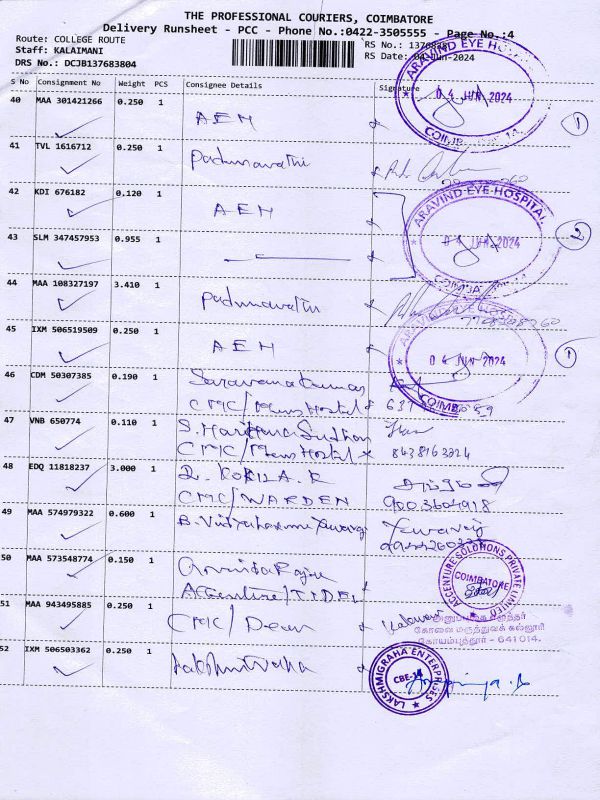 THE PROFESSIONAL COURIERS, COIMBATORE
Delivery Runsheet - PCC - Phone No.:0422-3505555 - Page No.:4
Route: COLLEGE ROUTE
Staff: KALAIMANI
DRS No.: DCJB137683804
RS No.:
RS Date: 04-Jun-2024
S No Consignment No Weight PCS Consignee Details Signature
40 MAA 301421266 0.250 1 AEH
ARAVIND EYE HOSPITAL
04 JUN 2024
1
41 TVL 1616712 0.250 1 Padmavathi
42 KDI 676182 0.120 1 AEH
ARAVIND-EYE-HOSPITAL
04 JUN 2024
2
43 SLM 347457953 0.955 1
44 MAA 108327197 3.410 1 Padmavathi
45 IXM 506519509 0.250 1 AEH
04 JUN 2024
1
46 CDM 50307385 0.190 1 Saravanakumar
CMC/Mens Hostel
47 VNB 650774 0.110 1
CMC/Mens Hostel 8438163224
48 EDQ 11818237 3.000 1
CMC/WARDEN 9003604918
49 MAA 574979322 0.600 1
50 MAA 573548774 0.150 1
Accenture/TIDEL
ACCENTURE SOLUTIONS PRIVATE LIMITED
COIMBATORE
51 MAA 943495885 0.250 1 CMC/Dean
கோவை மருத்துவக் கல்லூரி
கோயம்புத்தூர் - 641 014.
52 IXM 506503362 0.250 1
LAKSHMIGRAHA ENTERPRISES
CBE-14